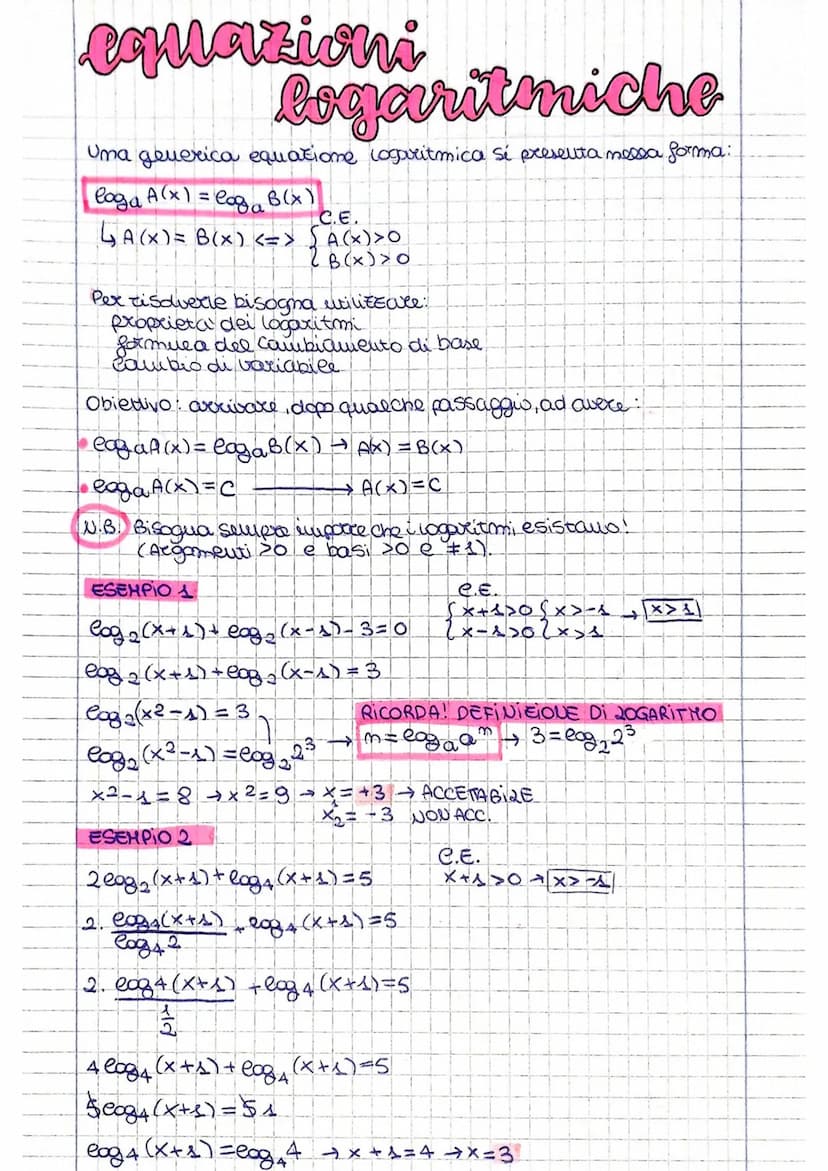 equazioni
logaritmiche
Una generica equazione logaritmica si presenta nella forma:
logₐ A(x) = logₐ B(x)
C.E.
↳ A(x) = B(x) <=> { A(x)>0
{ B(x)>0
Per risolverle bisogna utilizzare:
proprietà dei logaritmi
formula del cambiamento di base
cambio di variabile
Obiettivo: arrivare, dopo qualche passaggio, ad avere:
• logₐA(x) = logₐB(x) → A(x) = B(x)
• logₐA(x) = C → A(x) = C
N.B. Bisogna sempre imporre che i logaritmi esistano!
(Argomenti >0 e basi >0 e ≠1).
ESEMPIO 1
C.E.
log₂(x+1) + log₂(x-1) - 3 = 0 { x+1>0 { x>-1 → x>1
{ x-1>0 { x>1
log₂(x+1) + log₂(x-1) = 3
log₂(x2-1) = 3
RICORDA! DEFINIZIONE DI LOGARITMO
log₂(x²-1) = log₂2³ → n = logₐaⁿ → 3 = log₂2³
x2-1 = 8 → x2 = 9 → x₁ = +3 → ACCETTABILE
x₂ = -3 NON ACC.
ESEMPIO 2
C.E.
2log₂(x+1) + log₄(x+1) = 5 x+1>0 → x>-1
2. log₄(x+1)/log₄2 + log₄(x+1) = 5
2. log4(x+1)/(1/2) + log₄(x+1) = 5
4log₄(x+1) + log₄(x+1) = 5
5log4(x+1) = 5 1
log4(x+1) = log₄4 → x+1=4 → x=3